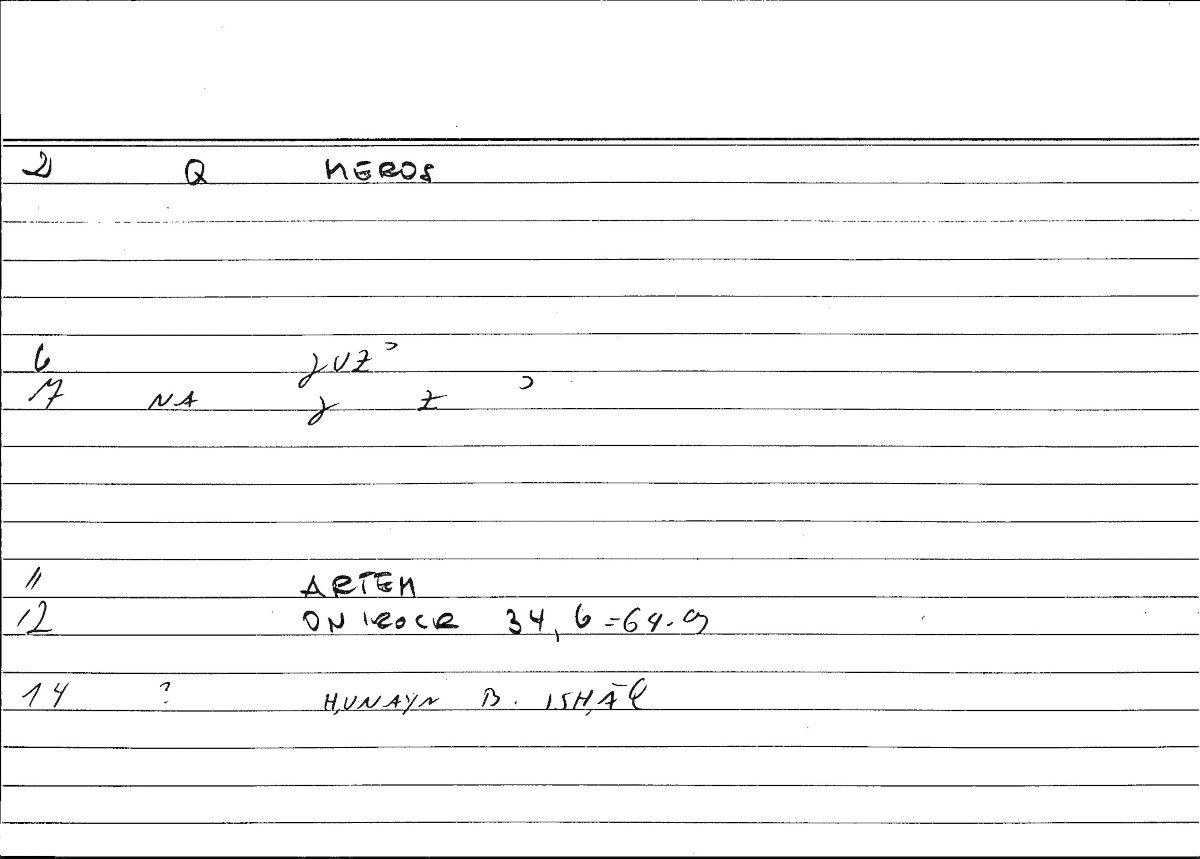 2 Q MEROS
6 JUZʾ
7 NA J Z ʾ
11 ARTEM
12 ONIROCR 34,6=64.9
14 ? ḤUNAYN B. ISḤĀQ